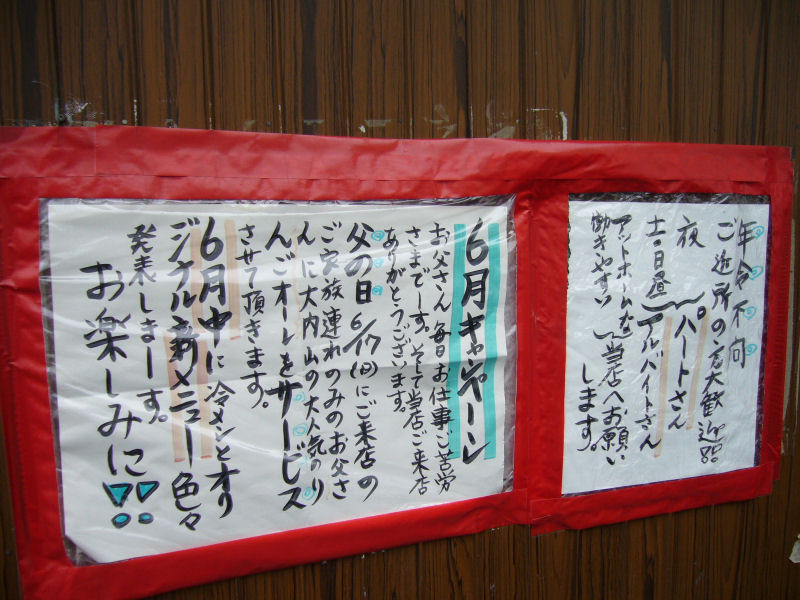 年令不向
ご近所の方大歓迎!!
夜 パートさん
土・日昼 アルバイトさん
アットホームな
働きやすい
当店へお願い
します。
6月キャンペーン
お父さん毎日お仕事ご苦労
さまでーす。そして当店ご来店
ありがとうございます。
父の日6/17(日)にご来店の
ご家族連れのみのお父さ
んに大内山の大人気のり
んごオーレをサービス
させて頂きます。
6月中に冷メンとオリ
ジナル新メニュー色々
発表しまーす。
お楽しみに!!